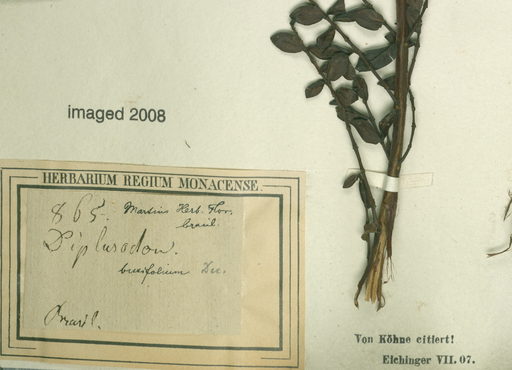 imaged 2008
HERBARIUM REGIUM MONACENSE.
865. Martius Herb. Flor.
brasil.
Diplusodon.
buxifolium Dc.
Brasil.
Von Köhne citiert!
Eichinger VII. 07.